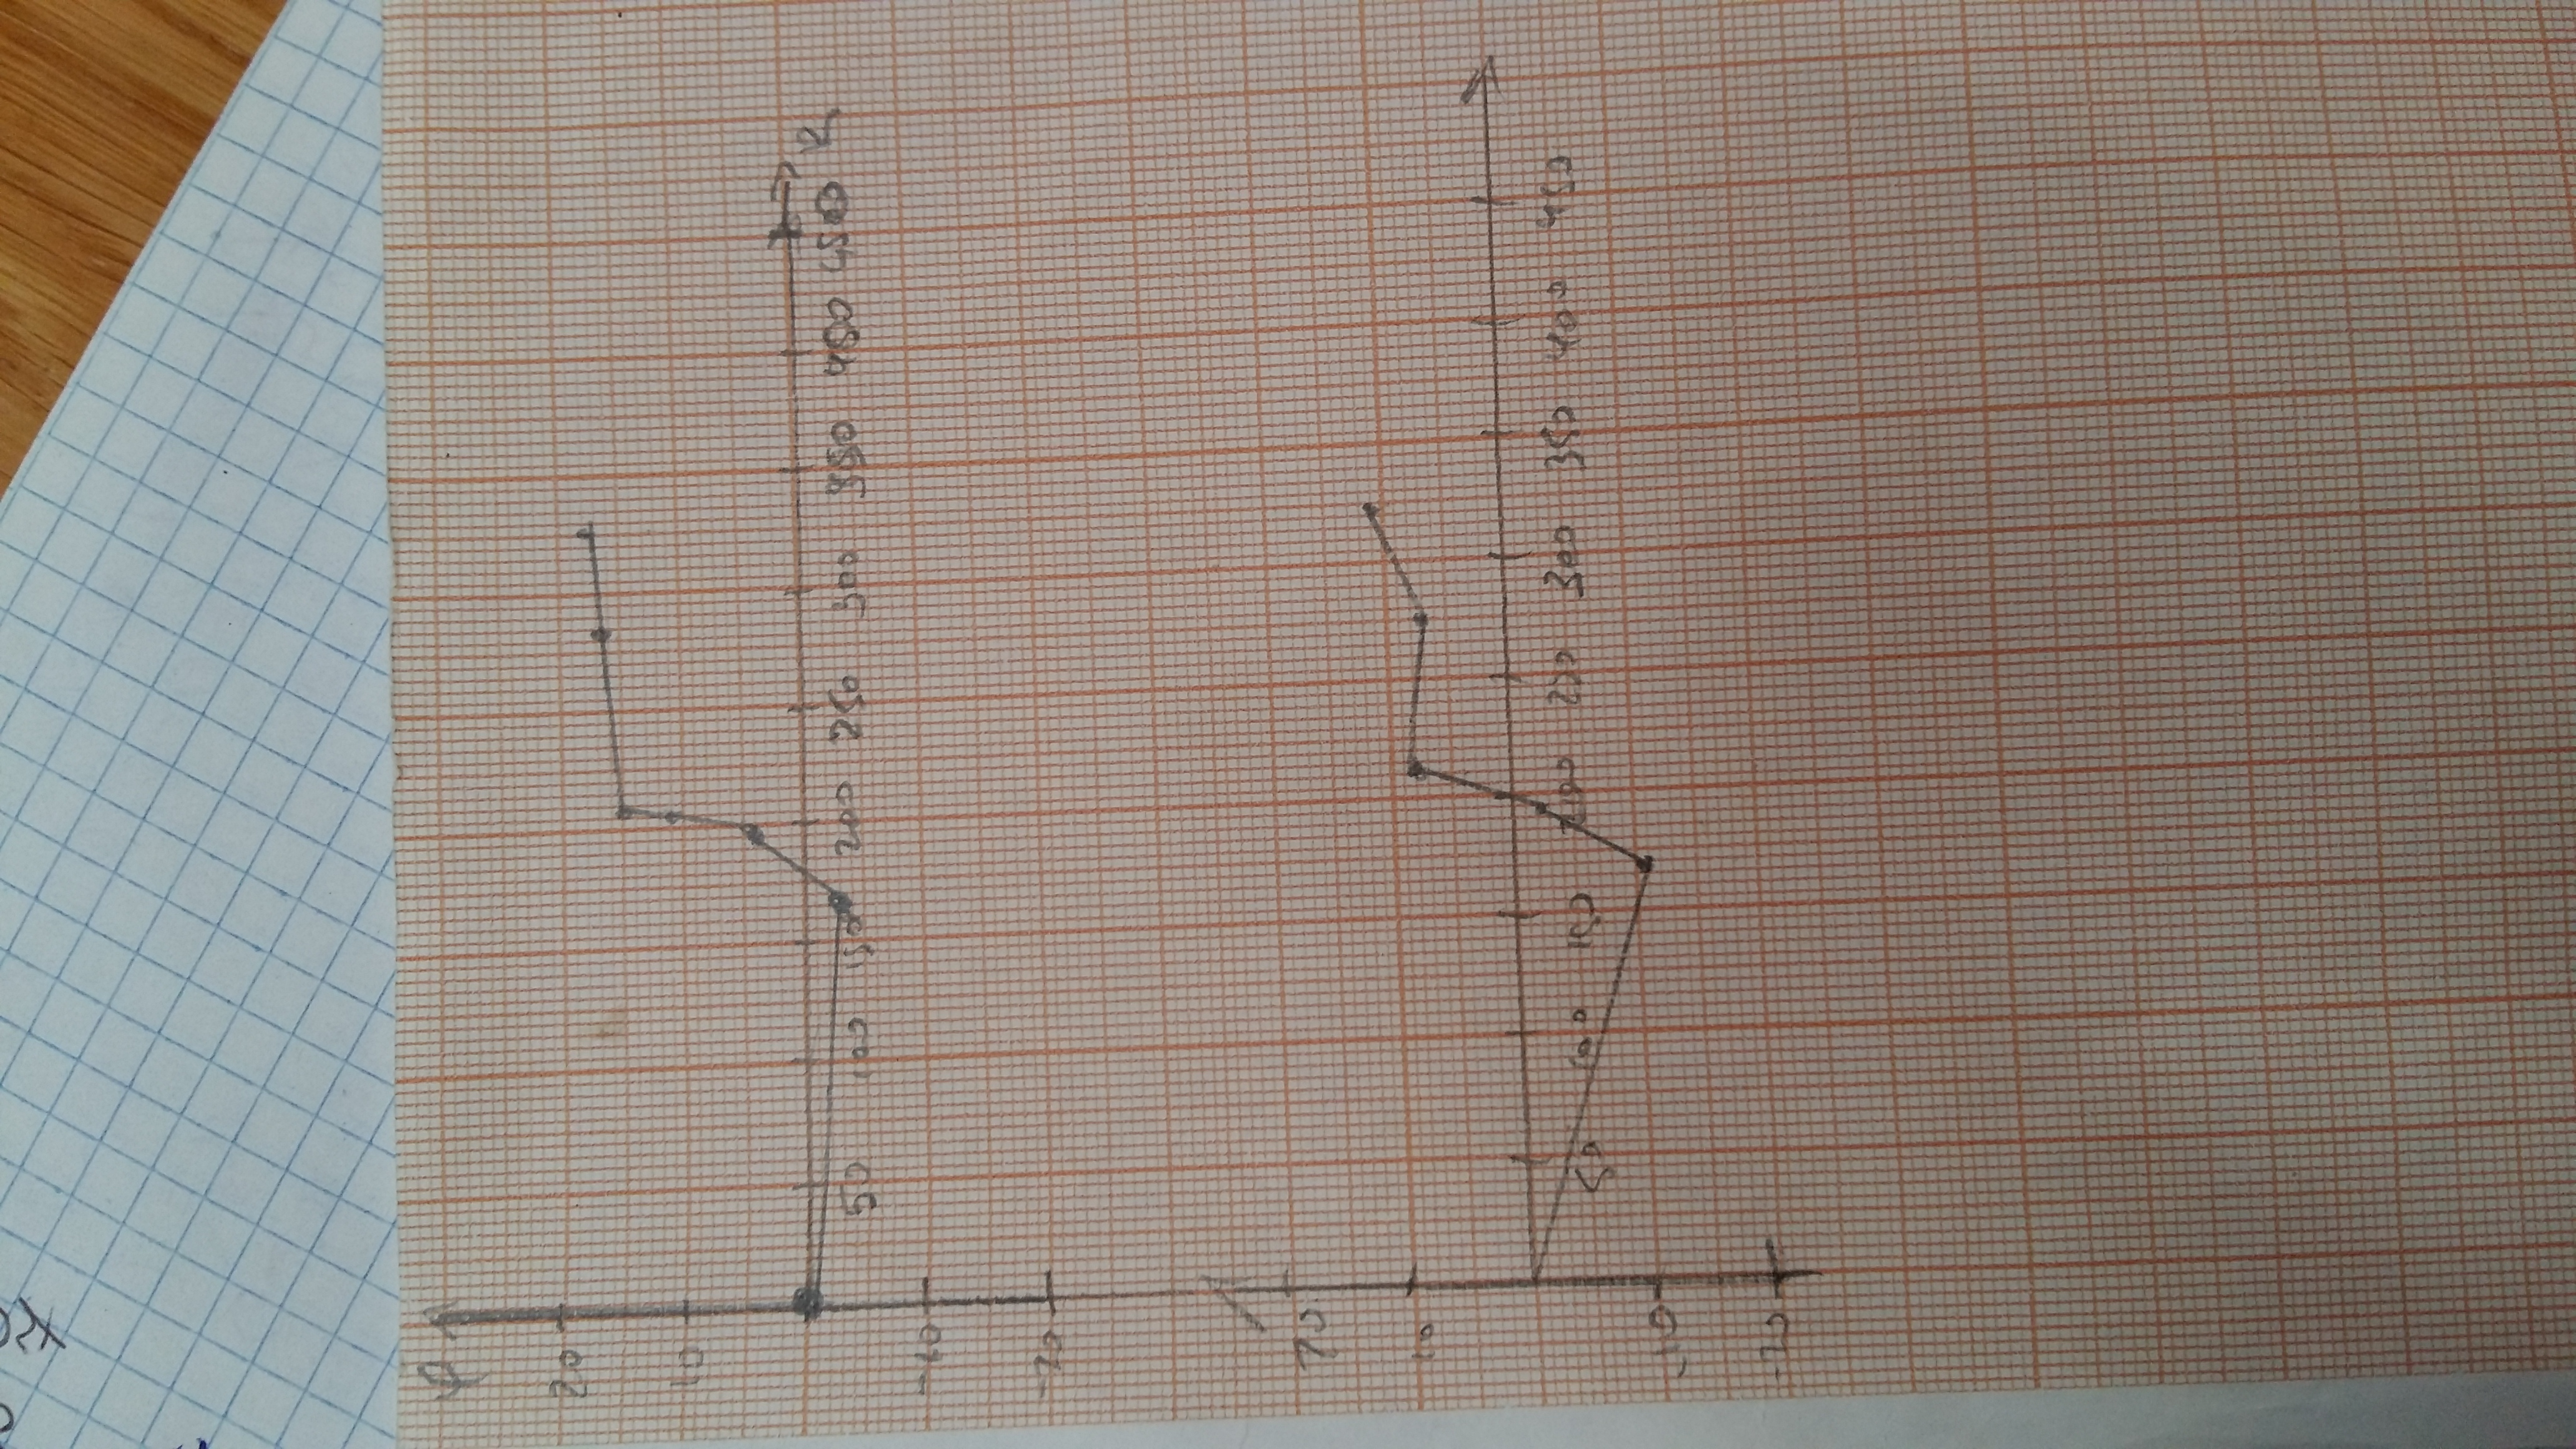 φ
20
10
50 100 150 200 250 300 350 450 450 R
-10
-20
20
10
50 100 150 200 250 300 350 400 450
-10
-20